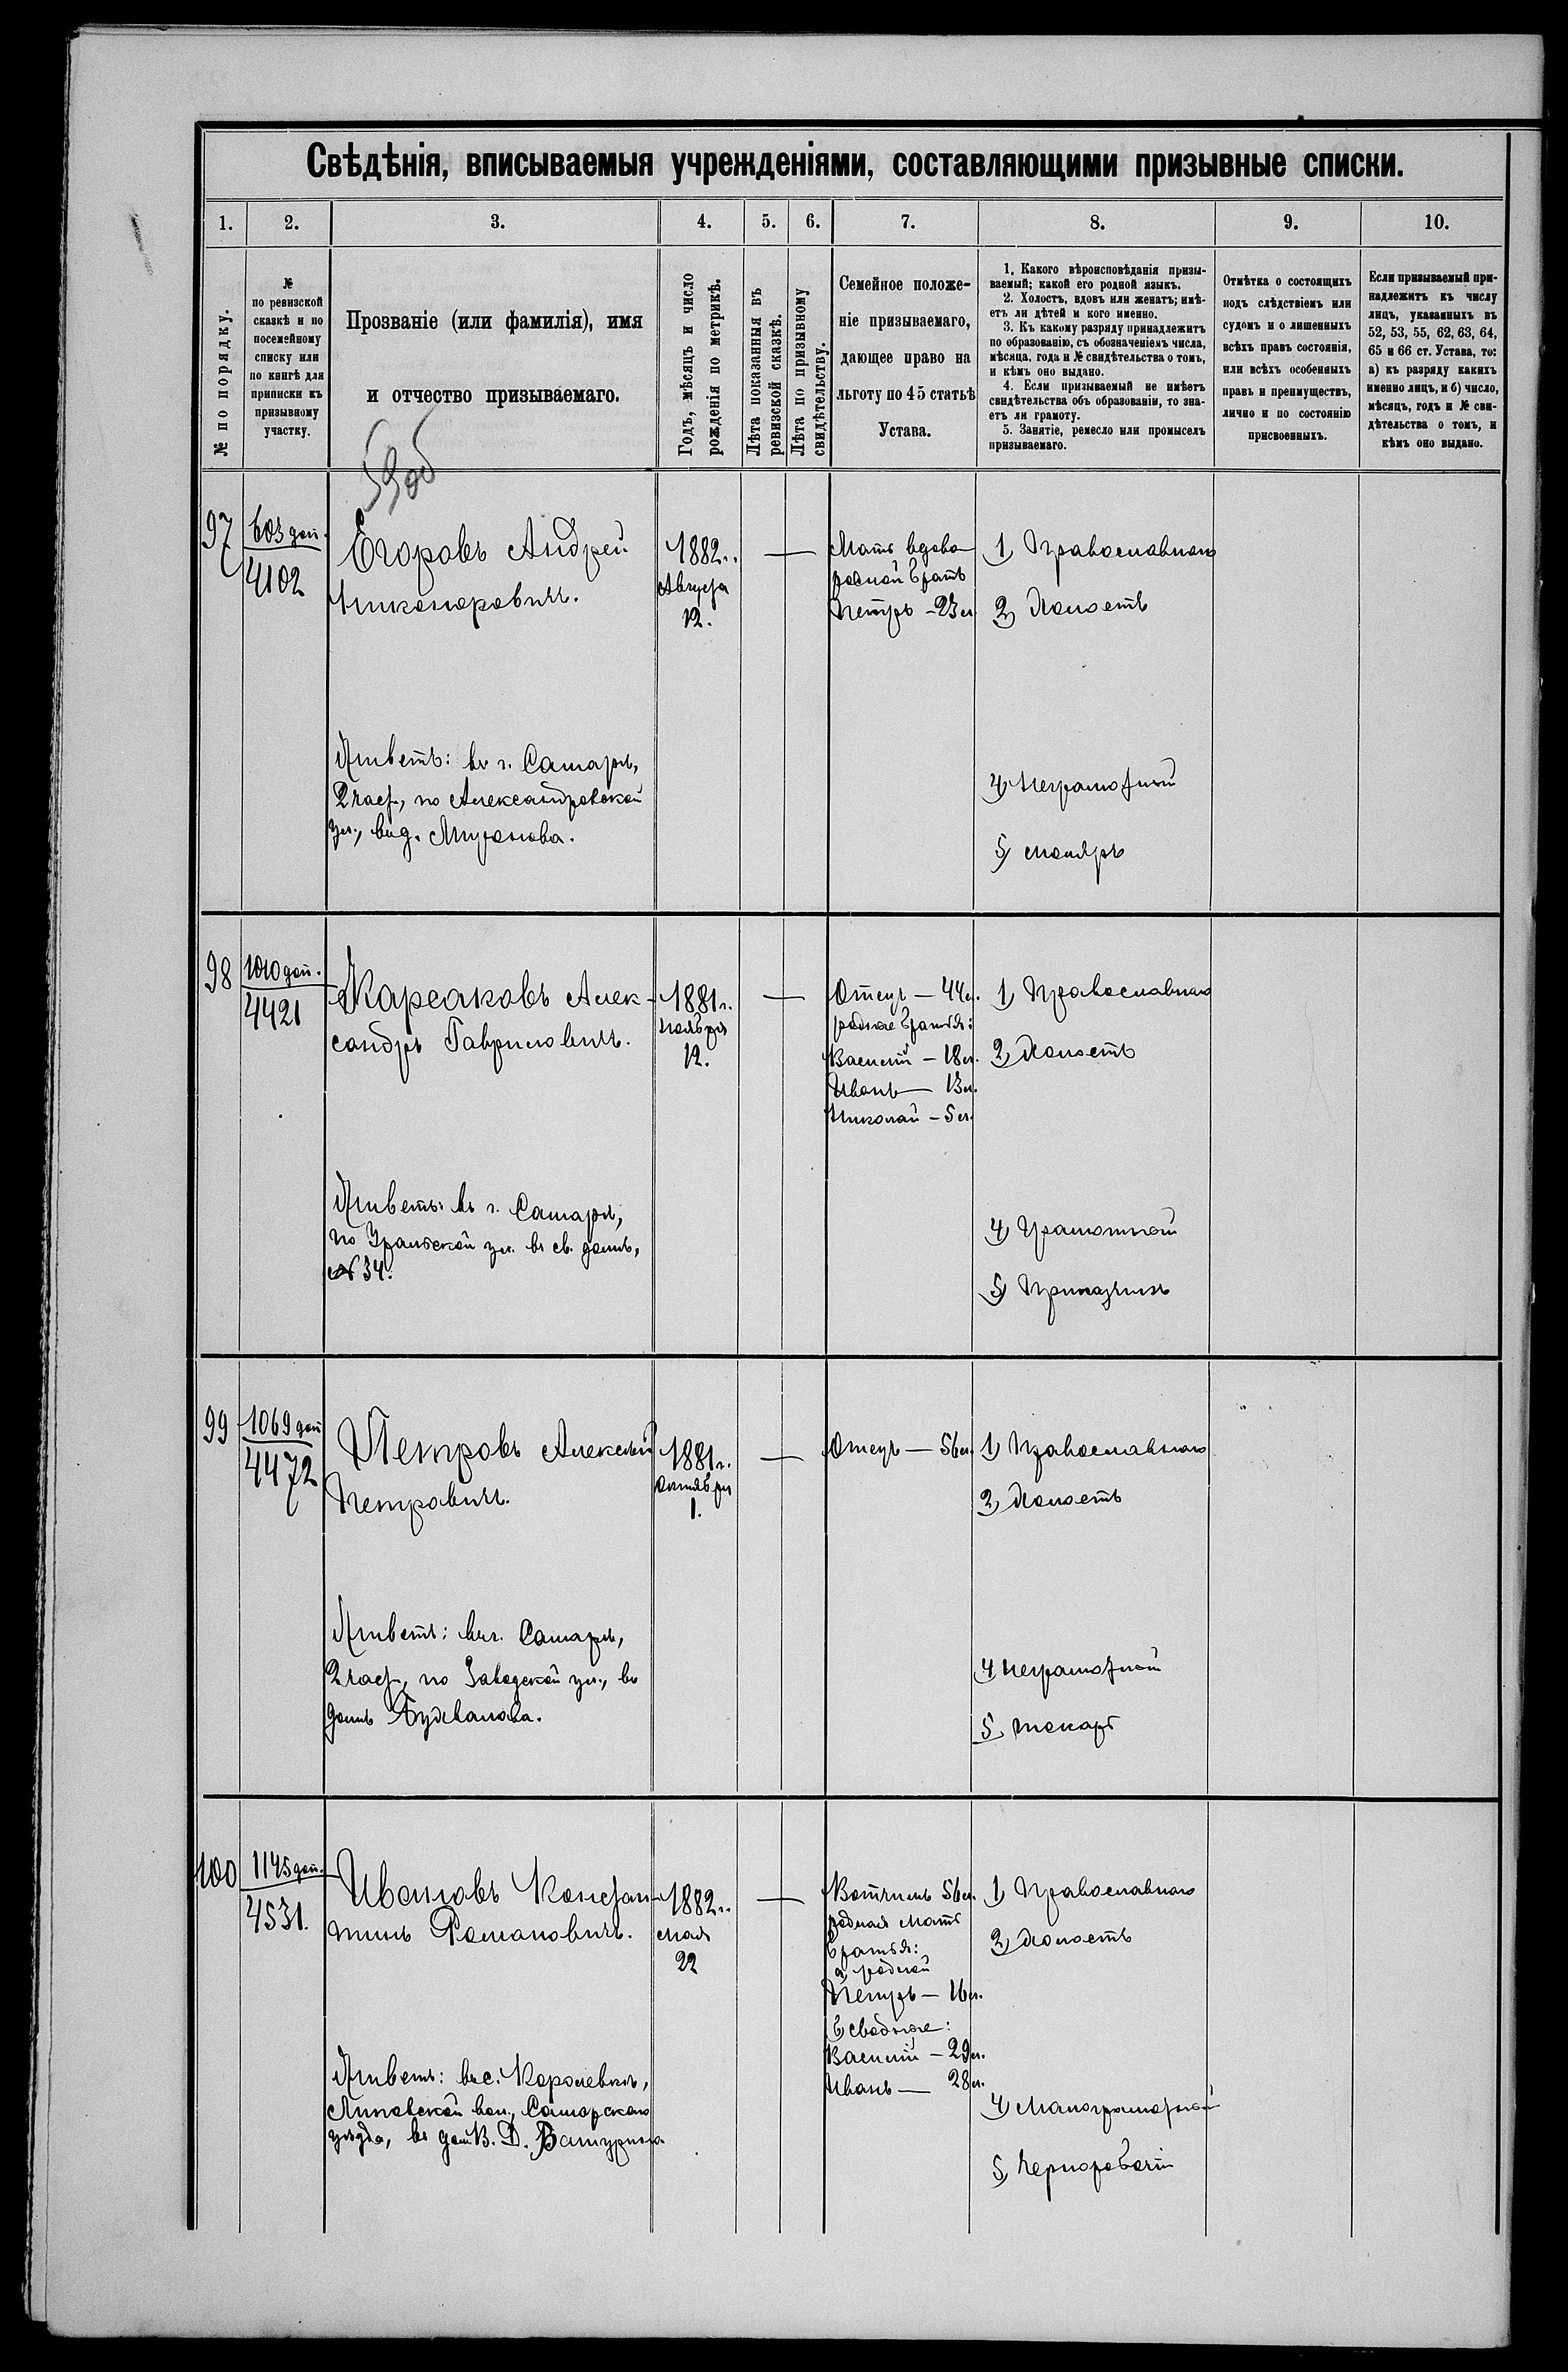 Свѣдѣнія, вписываемыя учрежденіями, составляющими призывные списки.
1. 2. 3. 4. 5. 6. 7. 8. 9. 10.
№ по порядку.
№
по ревизской
сказкѣ и по
посемейному
списку или
по книгѣ для
приписки къ
призывному
участку.
Прозваніе (или фамилія), имя
и отчество призываемаго.
Годъ, мѣсяцъ и число
рожденія по метрикѣ.
Лѣта показанныя въ
ревизской сказкѣ.
Лѣта по призывному
свидѣтельству.
Семейное положе-
ніе призываемаго,
дающее право на
льготу по 45 статьѣ
Устава.
1. Какого вѣроисповѣданія призы-
ваемый; какой его родной языкъ.
2. Холостъ, вдовъ или женатъ; имѣ-
етъ ли дѣтей и кого именно.
3. Къ какому разряду принадлежитъ
по образованію, съ обозначеніемъ числа,
мѣсяца, года и № свидѣтельства о томъ,
и кѣмъ оно выдано.
4. Если призываемый не имѣетъ
свидѣтельства объ образованіи, то зна-
етъ ли грамоту.
5. Занятіе, ремесло или промыселъ
призываемаго.
Отмѣтка о состоящихъ
подъ слѣдствіемъ или
судомъ и о лишенныхъ
всѣхъ правъ состоянія,
или всѣхъ особенныхъ
правъ и преимуществъ,
лично и по состоянію
присвоенныхъ.
Если призываемый при-
надлежитъ къ числу
лицъ, указанныхъ въ
52, 53, 55, 62, 63, 64,
65 и 66 ст. Устава, то:
а) къ разряду какихъ
именно лицъ, и б) число,
мѣсяцъ, годъ и № сви-
дѣтельства о томъ, и
кѣмъ оно выдано.
97
603 доп.
4102
Егоровъ Андрей
Никоноровичъ.
Живетъ: въ г. Самарѣ,
2 част, по Александровской
ул., в д.
1882 г.
Августа
12.
—
Мать вдова
родной братъ
Петръ – 23 л
1) Православнаго
2) Холостъ
4) Неграмотный
5) Маляръ
98
1010 доп.
4421
Карсаковъ Алек-
сандръ Гавриловичъ.
Живетъ: въ г. Самарѣ,
по Уральской ул. въ св. домѣ,
№ 34.
1881 г.
Ноября
12.
—
Отецъ — 44 л.
родные братья:
Василій — 18 л.
Иванъ — 13 л.
Николай – 5 л.
1) Православнаго
2) Холостъ
4) Грамотный
5) Приказчикъ
99
1069 доп
4472
Петровъ Алексѣй
Петровичъ.
Живетъ: въ г. Самарѣ,
2 част, по Заводской ул., въ
домѣ
1881 г.
Октября
1.
—
Отецъ — 56 л.
1) Православнаго
2) Холостъ
4 Неграмотный
5. токарь
100
1145 доп.
4531.
Ивановъ Констан-
тинъ Романовичъ.
Живетъ: въ с. Королевкѣ,
вол., Самарскаго
уѣзда, въ дом. В. Д.
1882 г.
Мая
22
—
Вотчимъ 56 л.
родная мать
братья:
а) родной
Петръ — 16 л.
б) сводные:
Василій — 29 л.
Иванъ — 28 л.
1) Православнаго
2) Холостъ
4) Малограмотный
5) Чернорабочій